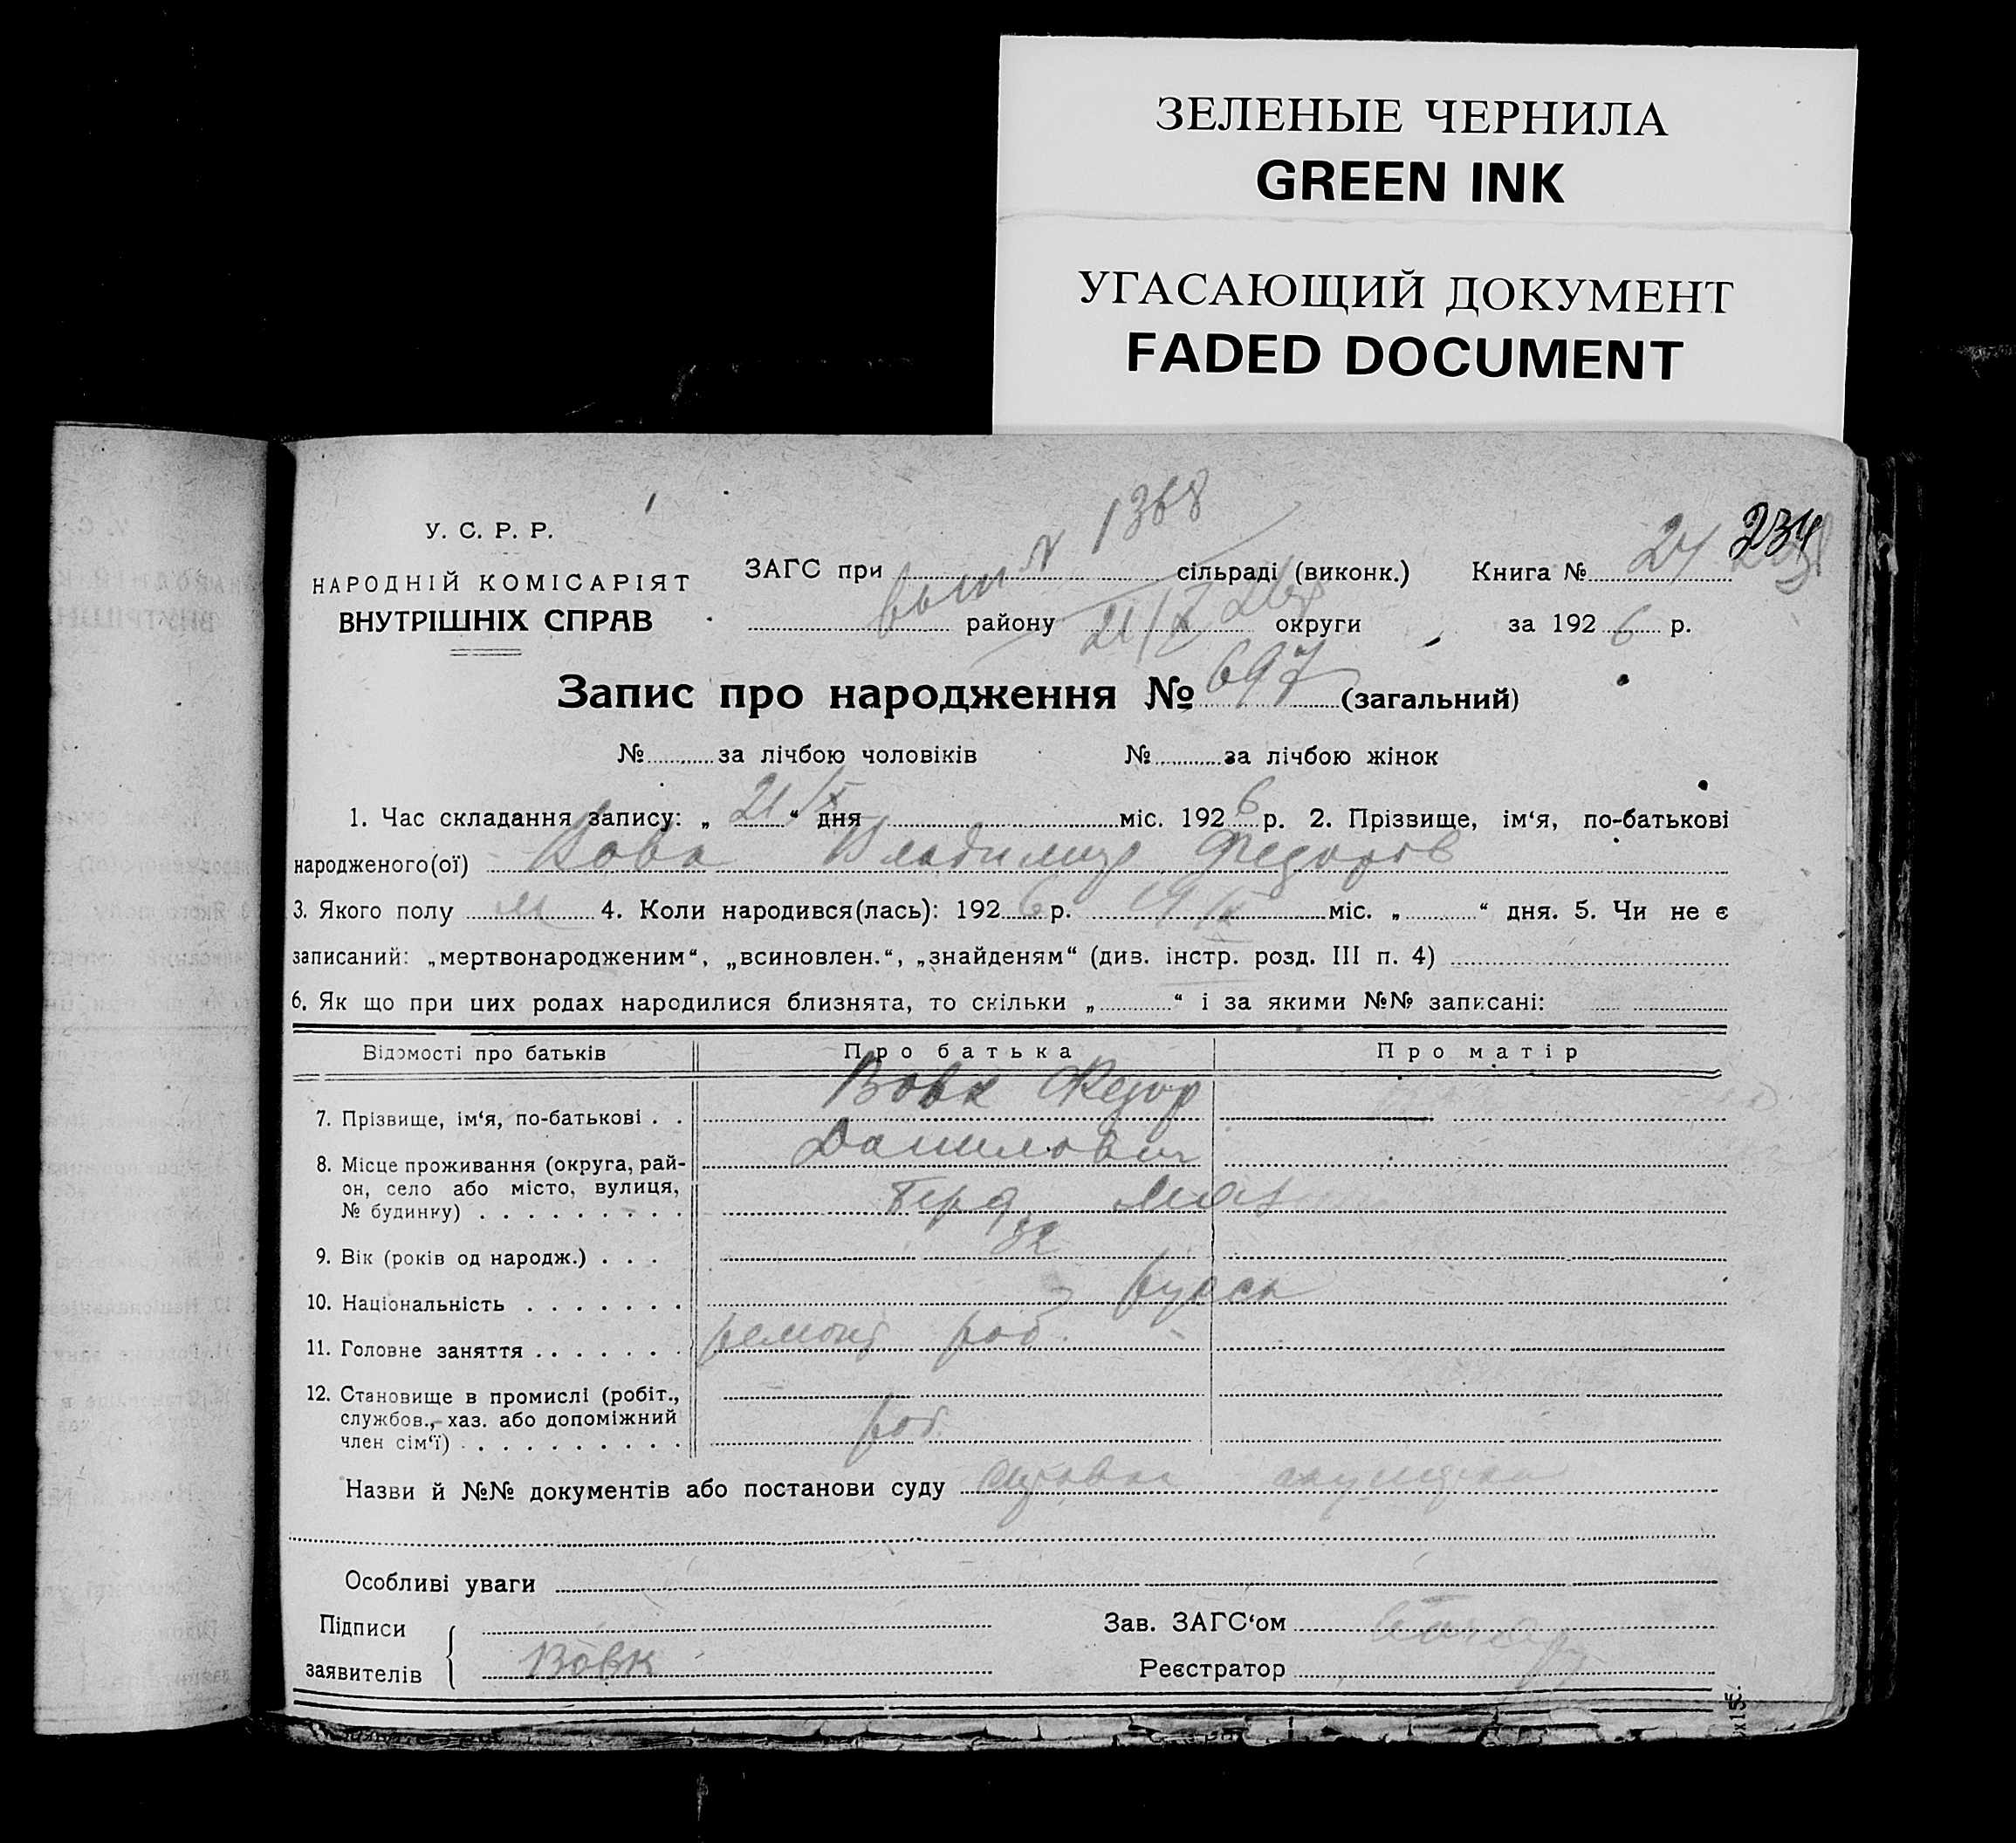 ЗЕЛЕНЫЕ ЧЕРНИЛА
GREEN INK
УГАСАЮЩИЙ ДОКУМЕНТ
FADED DOCUMENT
У. С. Р. Р.
НАРОДНІЙ КОМІСАРІЯТ
ВНУТРІШНІХ СПРАВ
N 1368
ЗАГС при сільраді (виконк.) Книга № 24 234
району округи за 1926 р.
Запис про народження № 697 (загальний)
№ за лічбою чоловіків № за лічбою жінок
1. Час складання запису: „ 21/X “ дня міс. 1926 р. 2. Прізвище, ім‘я, по-батькові
народженого(ої) Вовк Владимир Федоров
3. Якого полу м 4. Коли народився(лась): 1926 р. 19 IX міс. „ “ дня. 5. Чи не є
записаний: „мертвонародженим“, „всиновлен.“, „знайденям“ (див. інстр. розд. III п. 4)
6. Як що при цих родах народилися близнята, то скільки „ “ і за якими №№ записані:
Відомості про батьків Про батька Про матір
Вовк Федор
7. Прізвище, ім‘я, по-батькові . .
Данилович
8. Місце проживання (округа, рай-
он, село або місто, вулиця,
№ будинку) . . . . . . . . .
9. Вік (років од народж.) . . . 32
10. Національність . . . . . . .
11. Головне заняття . . . . . . . ремонт раб.
12. Становище в промислі (робіт.,
службов., хаз. або допоміжний
член сім‘ї) . . . . . . . . . . раб.
Назви й №№ документів або постанови суду
Особливі уваги
Підписи Зав. ЗАГС‘ом
заявителів Вовк Реєстратор